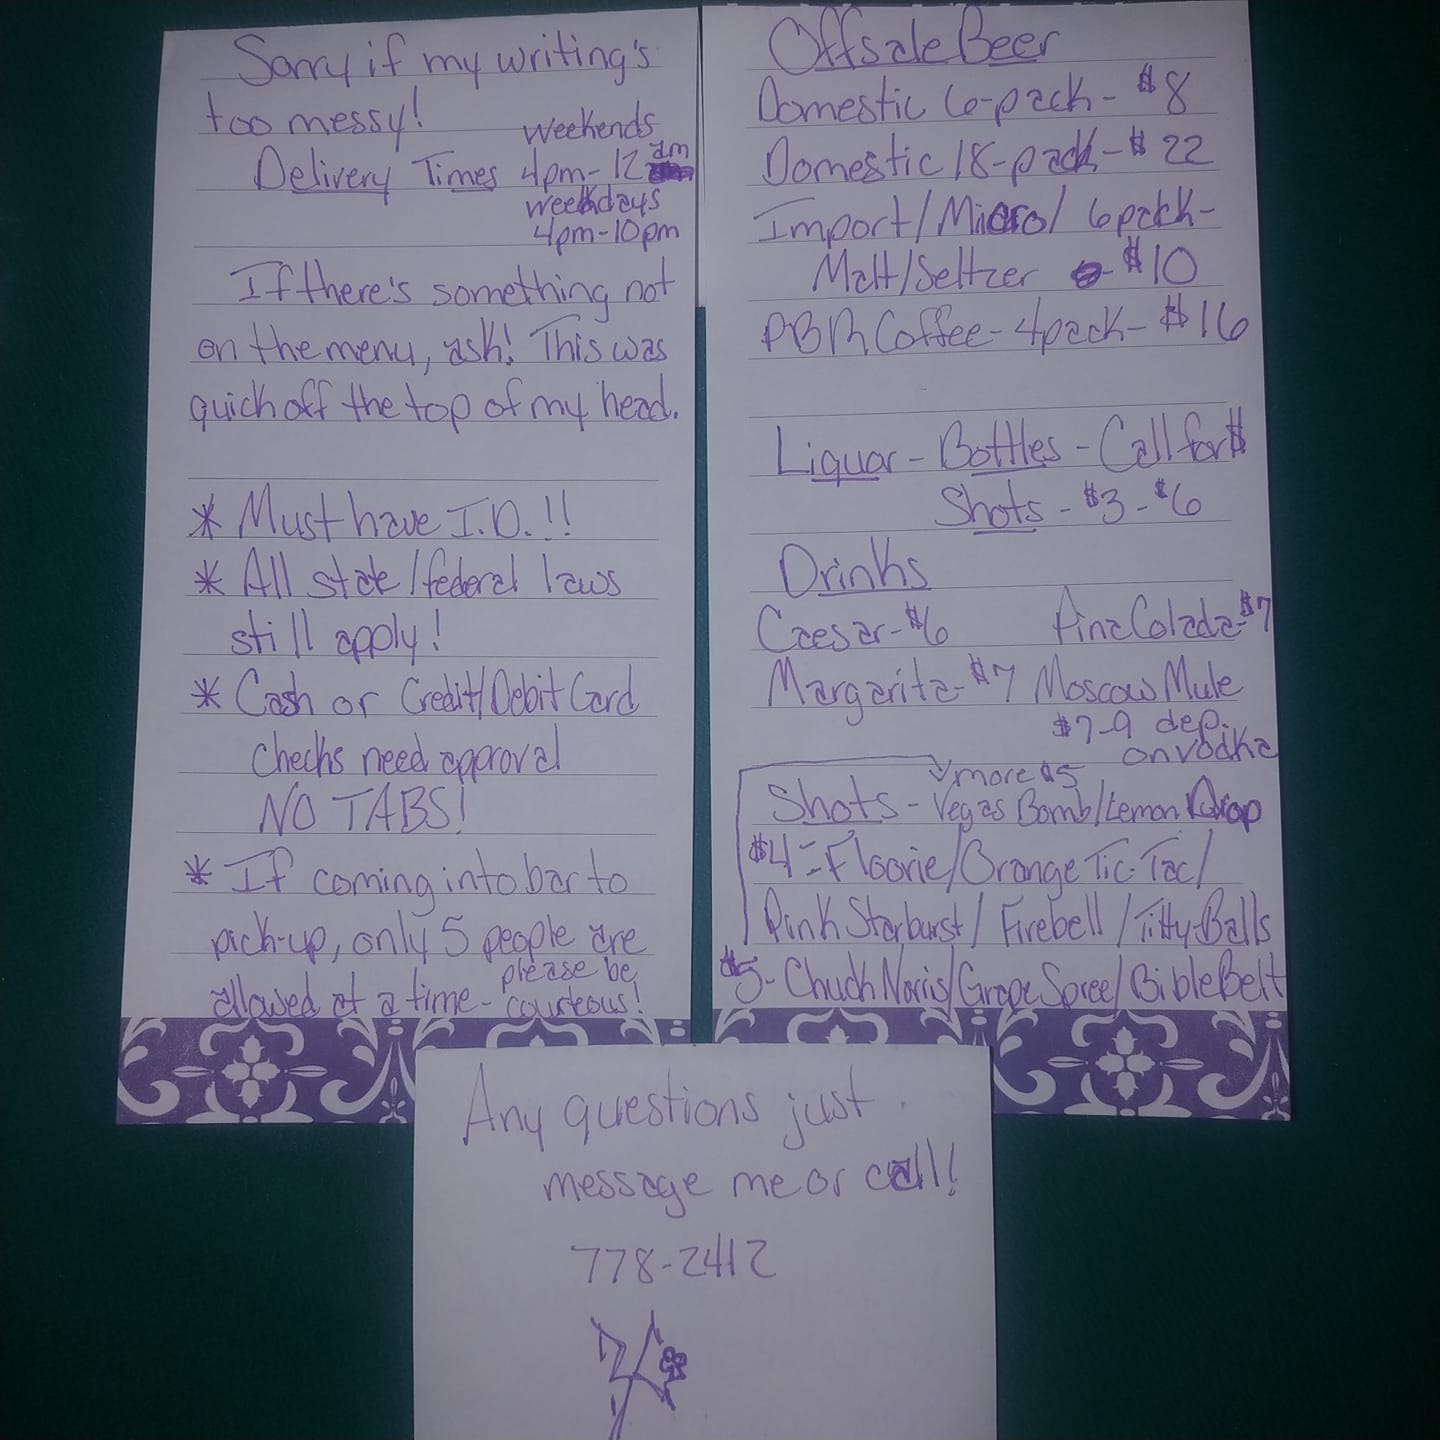 Sorry if my writing's
too messy!
Delivery Times
Weekends
4pm-12am
weekdays
4pm-10pm
If there's something not
on the menu, ask! This was
quick off the top of my head.
* Must have I.D.!!
* All state/federal laws
still apply!
* Cash or Credit/Debit Card
checks need approval
NO TABS!
* If coming into bar to
pick-up, only 5 people are
allowed at a time - please be
courteous!
Offsale Beer
Domestic 6-pack - $8
Domestic 18-pack - $22
Import/Micro/ 6pack-
Malt/Seltzer - $10
PBR Coffee - 4pack - $16
Liquor - Bottles - Call for $
Shots - $3 - $6
Drinks
Caesar - $6 Pina Colada - $7
Margarita - $7 Moscow Mule
$7-9 dep.
on vodka
more $5
Shots - Vegas Bomb/Lemon Drop
$4 - Floorie/Orange Tic-Tac/
Pink Starburst/ Fireball /Titty-Balls
$5 - Chuck Norris/Grape Spree/Bible Belt
Any questions just
message me or call!
778-2412